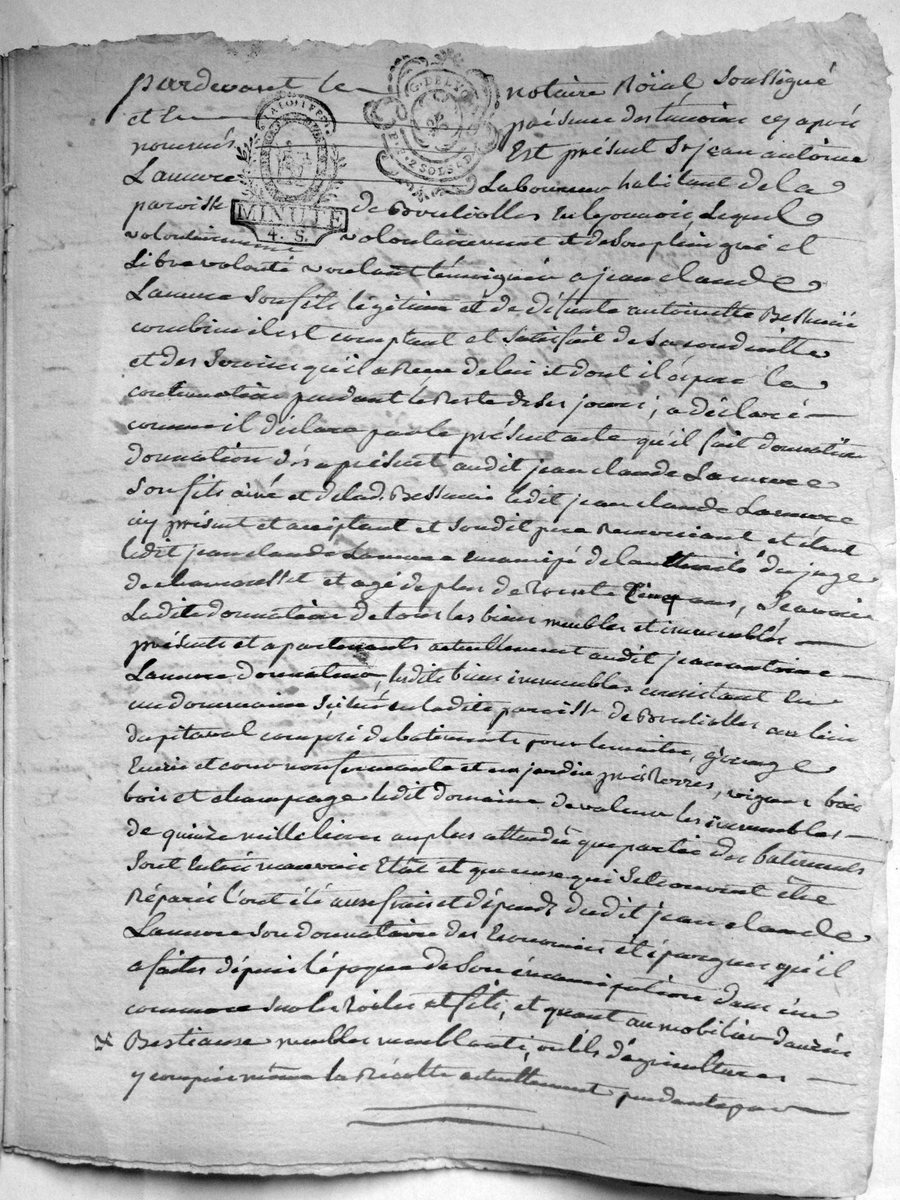 pardevant le notaire Roïal Soussigné
et en présence des témoins cy après
nommés Est présent Sr jean antoine
Lamure Laboureur habitant de la
paroisse de Brulliolles en lyonnois, Lequel
volontairement volontairement et de son plein gré et
Libre volonté voulant témoigner a jean claude
Lamure Son fils légitime et de défunte antoinette Bessenay
combien il est comptant et Satisfait de Sa conduitte
et des Services qu'il a Reçu de lui et dont il éspere la
continuation pendant le Reste de Ses jours, a déclaré
comme il déclare par le présent acte qu'il fait donnation
donnation dès a présent audit jean claude Lamure
Son fils ainé et de lad. Bessenay ledit jean claude Lamure
icy présent et acceptant et Soudit pere Remerciant et étant
ledit jean claude Lamure emancipé de l'authorité du juge
de chamousset et agé de plus de trente Cinq ans, Sçavoir
Ladite donnation de tous les biens meubles et immeubles
présents et apartenants actuellement audit jean antoine
Lamure donnateur, lesdits biens immeubles consistant en
un dommaine Scitué en ladite paroisse de Brulliolles au lieu
du pitaval composé de batiments pour le maitre, grange
Ecurie et cour renfermante et un jardin prés terres, vignes bois
bois et champage ledit domaine de valeur les immeubles
de quinze mille livres au plus attendu que partie des batiments
Sont en très mauvais Etat et que ceux qui Se trouvent être
Réparés l'ont été aux frais et dépends dudit jean claude
Lamure Son donnataire des Economies et épargnes qu'il
a faites dépuis l'époque de Son émancipation dans un
commerce Sur les toiles et fils, et quant au mobilier
Bestiaux meubles meublants, outils d'agricultures
y compris même la Récolte actuellement pendante par
G. DE LYON
2 SOLS
MINUTE
4. S.